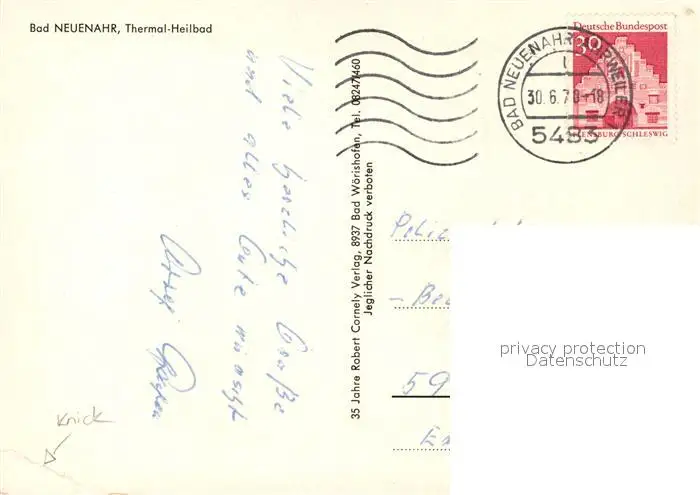 Bad NEUENAHR, Thermal-Heilbad
Viele herzliche Grüße
und alles Gute wünscht
35 Jahre Robert Cornely Verlag, 8937 Bad Wörishofen, Tel. 08247/460
Jeglicher Nachdruck verboten
Deutsche Bundespost
30
FLENSBURG/SCHLESWIG
BAD NEUENAHR-AHRWEILER
30.6.70-18
5483
59
Knick
privacy protection
Datenschutz